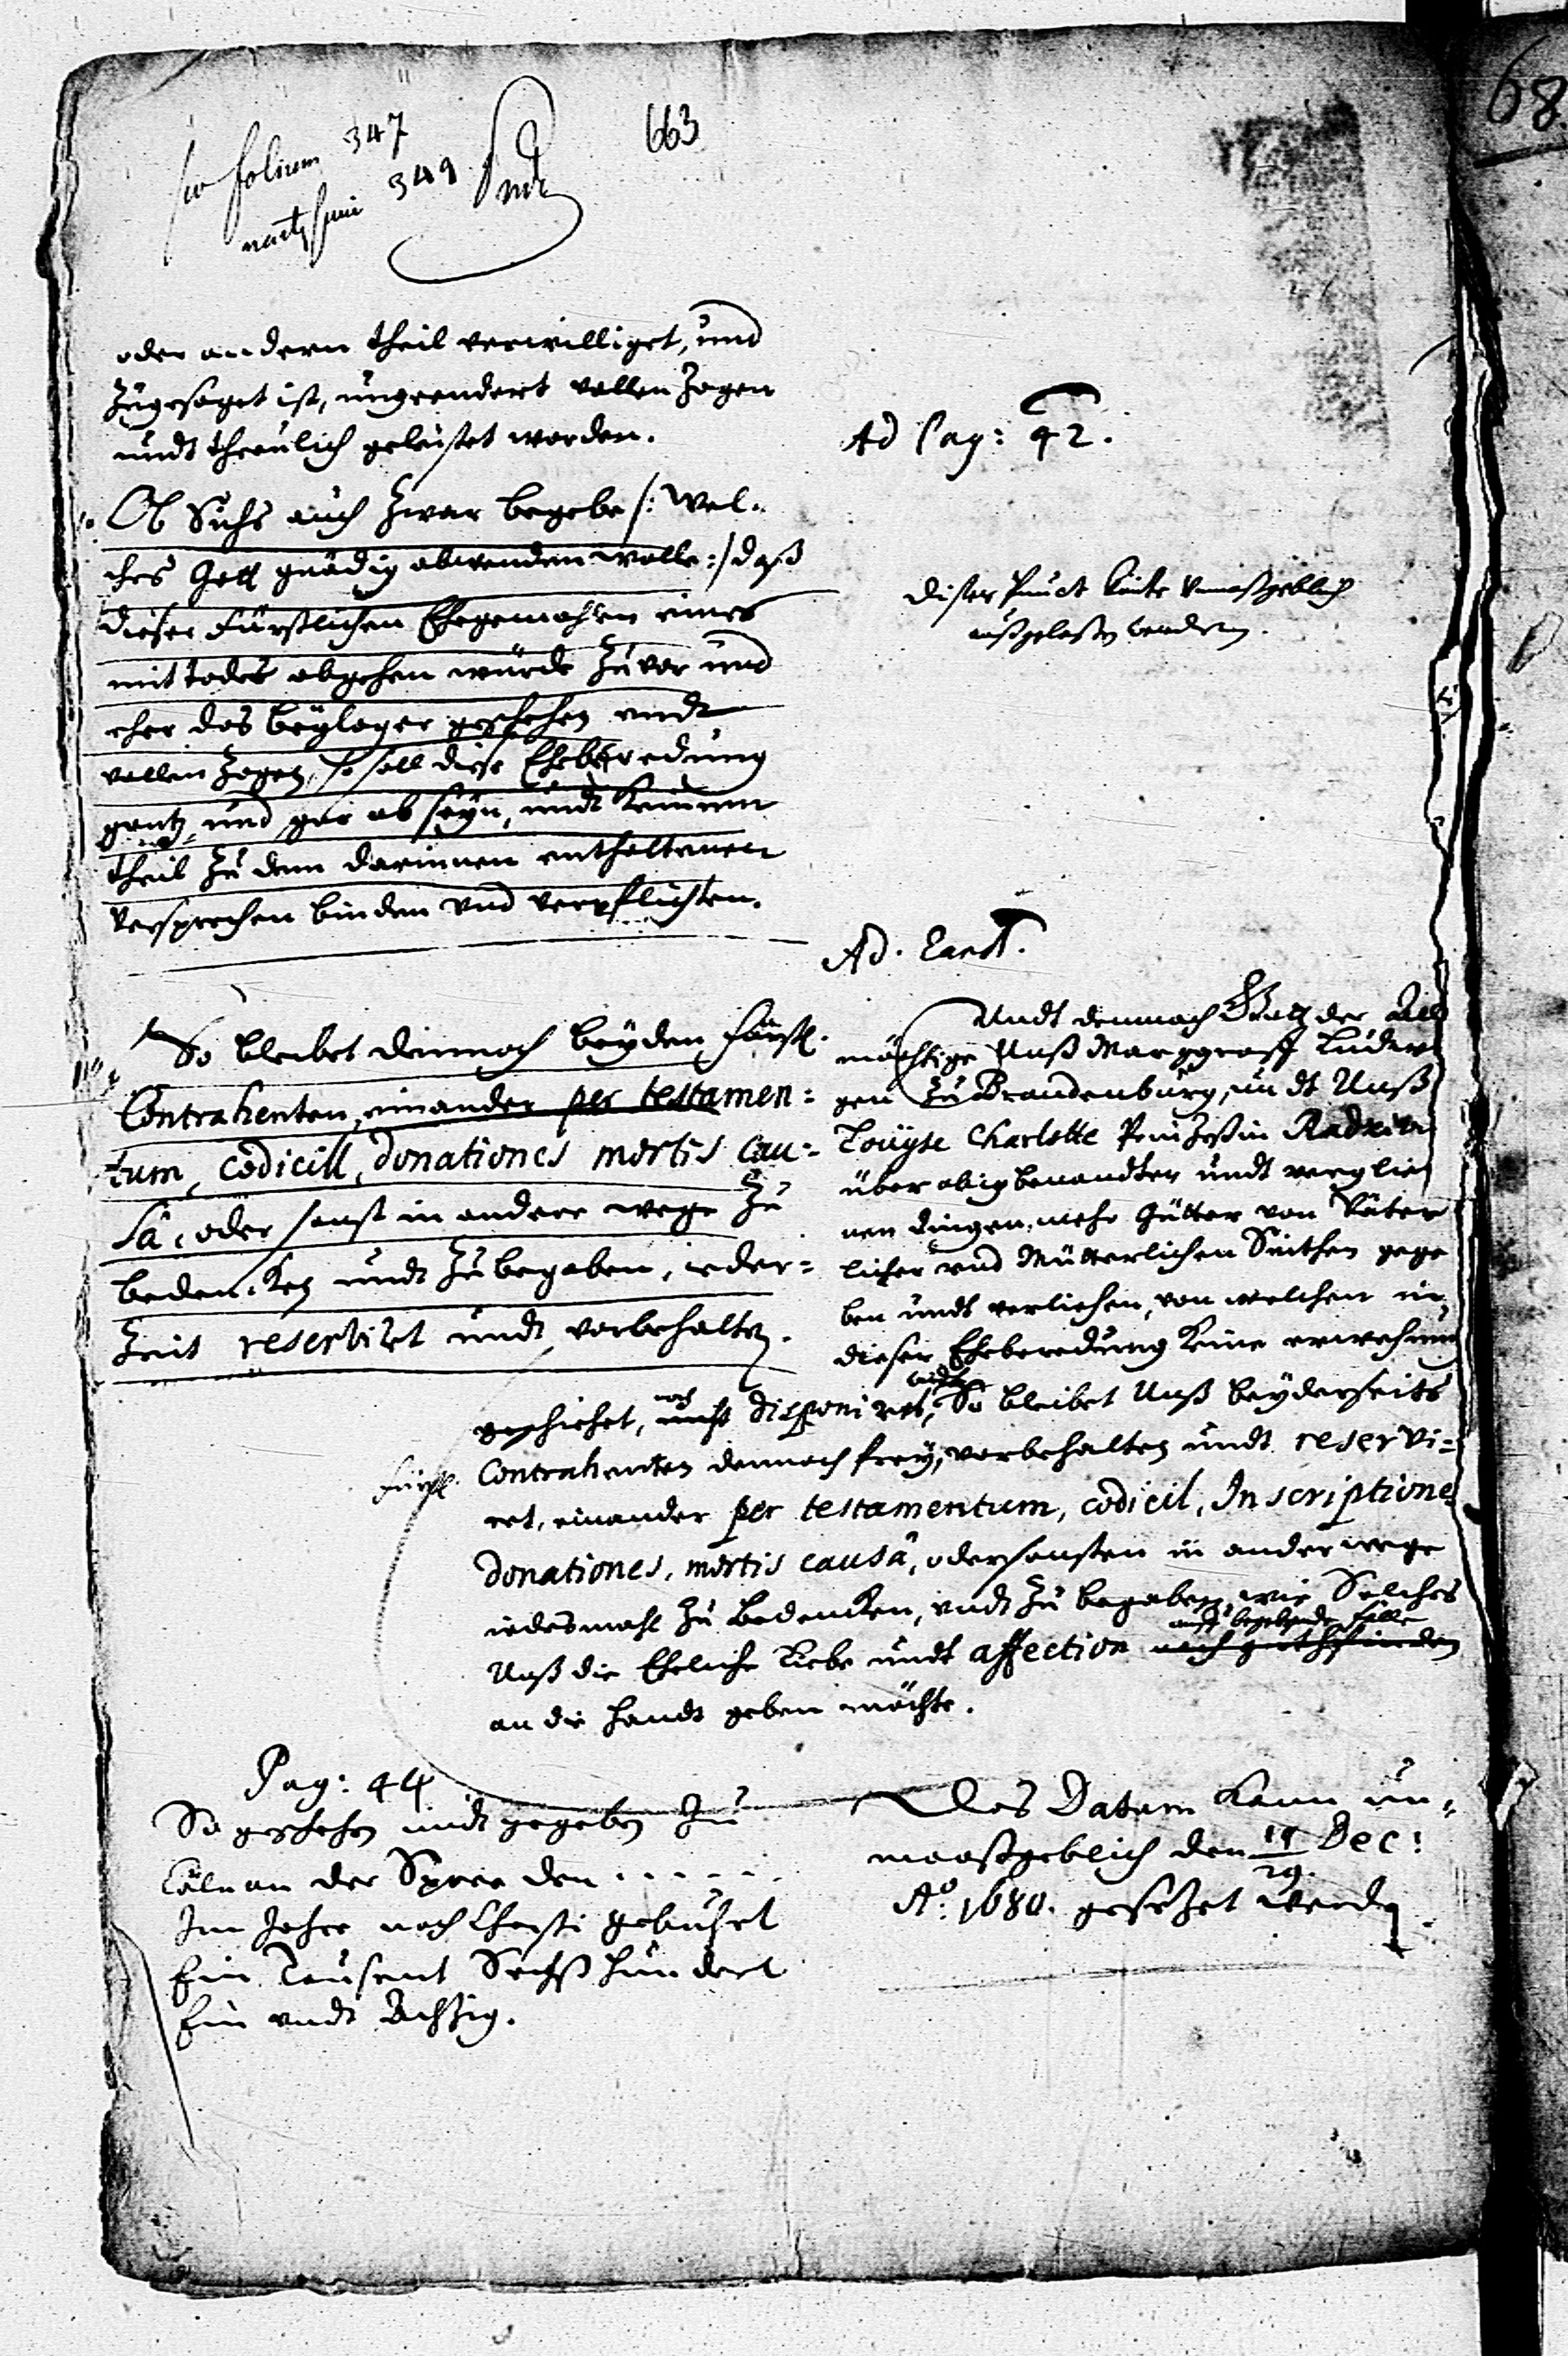 663
68
folium 347
349
oder andern theil verwilliget, und
zugesaget ist, ungeendert vollenzogen
undt threulich geleistet werden.
Ad Pag: 42.
Ob Sichs auch zwar begebe /: wel-
ches Gott gnädig abwenden wolle :/ daß
dieser Fürstlichen Ehegemahlen eines
mit todes abgehen würde zuvor und
eher das beylager geschehen undt
vollenzogen, so soll diese Eheberedung
gantz und gar ab seyn, undt keinem
theil zu dem darinnen enthaltenen
Versprechen binden vnd verpflichten.
Dißer Punct könte vnmaßgeblich
außgelaßen werden.
Ad. Eand.
So bleibet dennoch beyden Fürstl.
Contrahenten, einander per testamen=
tum, codicill, donationes mortis cau=
sâ, oder sonst in andere wege zu
bedencken undt zu begaben, ieder=
zeit reservirt undt vorbehalten.
Undt demnach Gott der All
mächtige Unß Marggraff Ludwi
gen zu Brandenburg, undt Unß
Louyse Charlotte Prinzeßin Radzivi
über obig benandten undt verglie
nen dingen, mehr Gütter von Väter
licher vnd Mütterlichen Seithen gege
ben undt verliehen, von welchen in
dieser Eheberedung keine erwehnun
geschiehet, noch nicht disponiret, wirdt So bleibet Unß beyderseits
Fürstl. Contrahenten dennoch frey, vorbehalten undt reservi=
ret, einander per testamentum, codicil, Inscriptiones
donationes, mortis causâ, oder sonsten in andere wege
iedesmahl zu bedencken, undt zu begaben, wie Solches
auff begebende fälle
Unß die Eheliche Liebe undt affection nach gutbefinden
an die handt geben möchte.
Pag: 44
So geschehen undt gegeben zu
Cöln an der Spree den . . . . .
Im Jahre nach Christi gebuhrt
Ein Tausent Sechß hundert
Ein undt Achtzig.
Das Datum kann un=
maaßgeblich den 19/29. Dec:
Aº. 1680. gesetzet werden